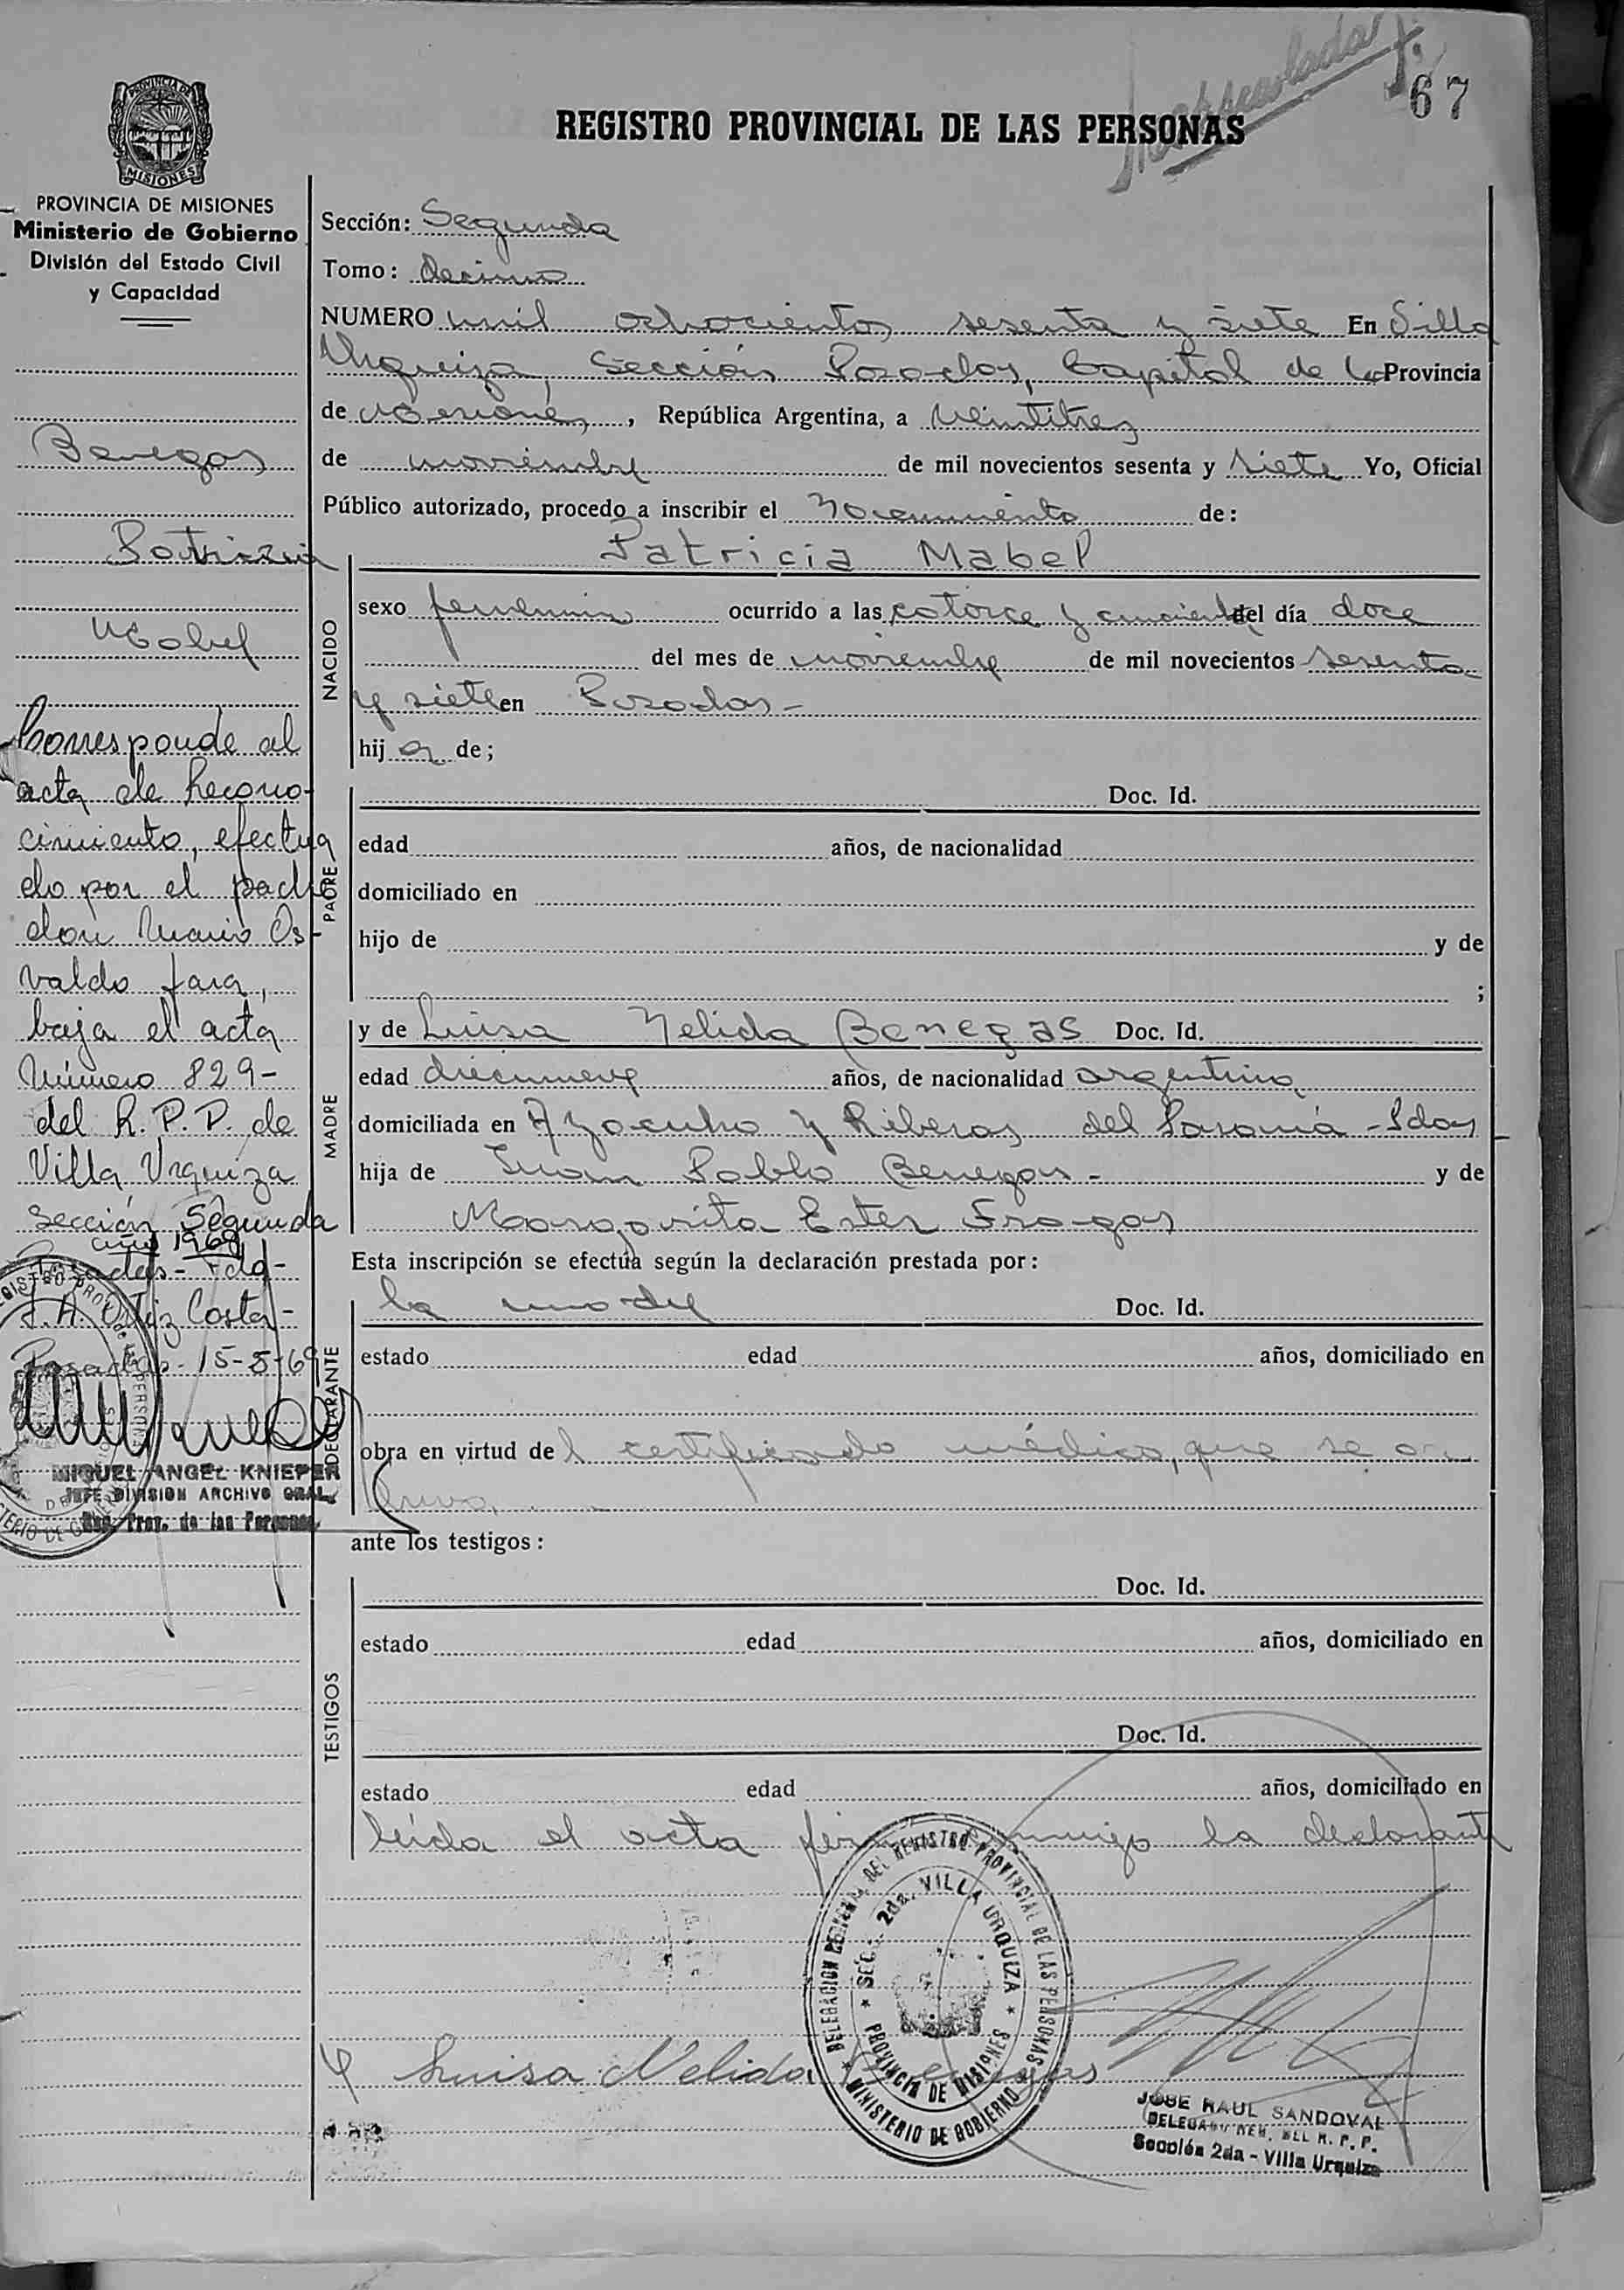 67
REGISTRO PROVINCIAL DE LAS PERSONAS
PROVINCIA DE MISIONES
PROVINCIA DE MISIONES
Ministerio de Gobierno
División del Estado Civil
y Capacidad
Benegas
Patricia
Mabel
Corresponde al
acta de Recono-
cimiento, efectua
do por el padre
don Mario Os-
valdo Jara,
baja el acta
Número 829-
del R. P. P. de
Villa Urquiza
Sección Segunda
año 1968
Posadas - Fdo-
Ortiz Costa-
Posadas - 15-5-69
MIGUEL ANGEL KNIEPER
JEFE DIVISION ARCHIVO GRAL.
Reg. Prov. de las Personas
Sección: Segunda
Tomo: Decimo
NUMERO mil ochocientos sesenta y siete En Villa
Urquiza, Sección Posadas, Capital de la Provincia
de Misiones, República Argentina, a veintitres
de noviembre de mil novecientos sesenta y siete Yo, Oficial
Público autorizado, procedo a inscribir el Nacimiento de:
NACIDO
Patricia Mabel
sexo femenino ocurrido a las catorce y cincuenta del día doce
del mes de noviembre de mil novecientos sesenta
y siete en Posadas-
hija de;
PADRE
Doc. Id.
edad años, de nacionalidad
domiciliado en
hijo de y de
;
MADRE
y de Luisa Nelida Benegas Doc. Id.
edad diecinueve años, de nacionalidad argentina
domiciliada en Ayacucho y Riberas del Paraná - Pdas
hija de Juan Pablo Benegas - y de
Margarita Ester Fragas
Esta inscripción se efectúa según la declaración prestada por:
DECLARANTE
la madre Doc. Id.
estado edad años, domiciliado en
obra en virtud del certificado médico, que se ar
chiva,
ante los testigos:
TESTIGOS
Doc. Id.
estado edad años, domiciliado en
Doc. Id.
estado edad años, domiciliado en
leída el acta firma conmigo la declarante
DELEGACION REGIONAL DEL REGISTRO PROVINCIAL DE LAS PERSONAS
SEC. 2da. VILLA URQUIZA
PROVINCIA DE MISIONES
MINISTERIO DE GOBIERNO
Luisa Nelida Benegas
JOSE RAUL SANDOVAL
DELEGADO REG. DEL R. P. P.
Sección 2da - Villa Urquiza